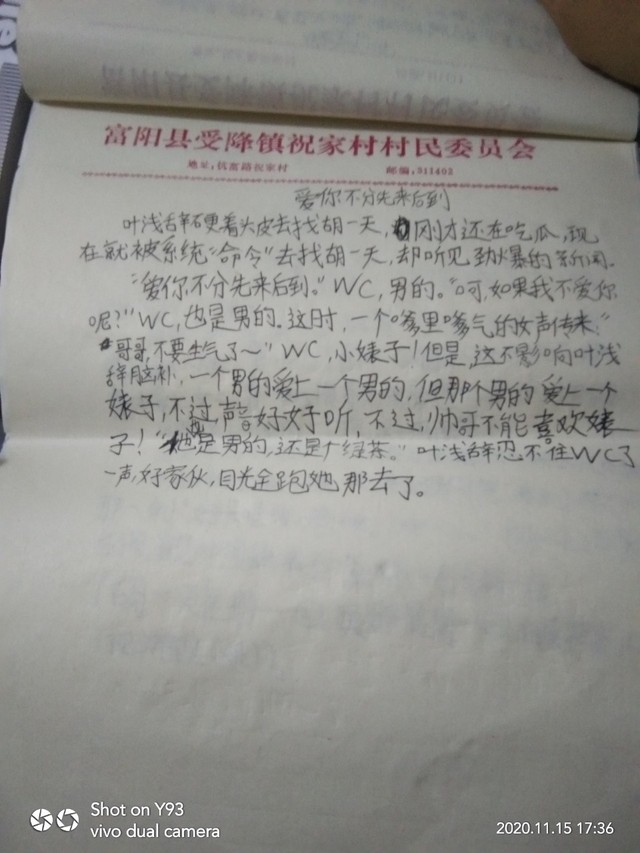 富阳县受降镇祝家村村民委员会
地址:杭富路祝家村 邮编:311403
爱你不分先来后到
叶浅辞硬着头皮去找胡一天,刚才还在吃瓜,现
在就被系统“命令”去找胡一天,却听见劲爆的新闻.
“爱你不分先来后到.”WC,男的。“呵,如果我不爱你
呢?”WC,也是男的.这时,一个嗲里嗲气的女声传来:“
哥哥,不要生气了~”WC,小婊子!但是,这不影响叶浅
辞脑补,一个男的爱上一个男的,但那个男的爱上一个
婊子,不过,声音好好听,不过,帅哥不能喜欢婊
子!“她是男的,还是个绿茶.”叶浅辞忍不住WC了
一声,好家伙,目光全跑她那去了。
Shot on Y93
vivo dual camera
2020.11.15 17:36